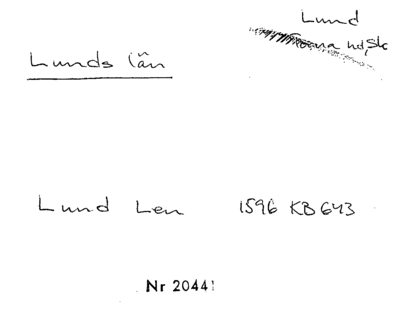 Lund
Torna hd, Sk
Lunds län
Lund Len 1596 KB 643
Nr 20441